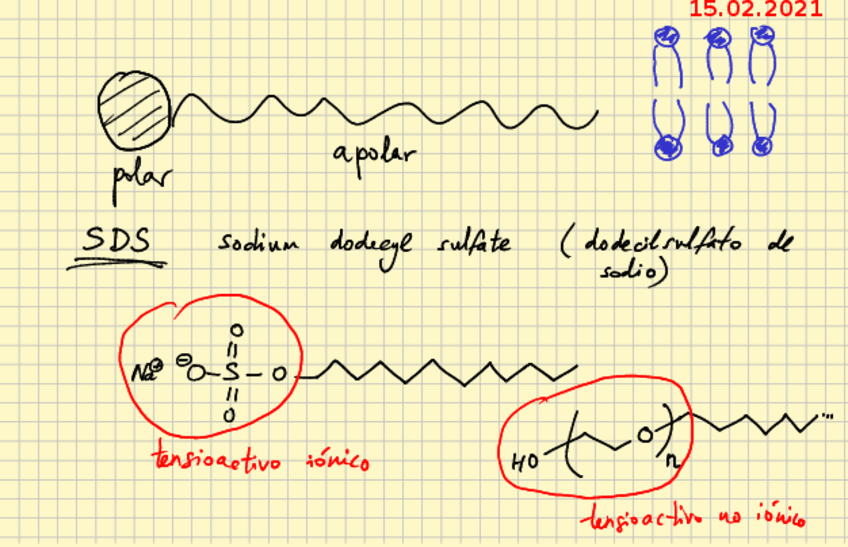 15.02.2021
polar
apolar
SDS sodium dodecyl sulfate (dodecilsulfato de
sodio)
O
Na⊕ ⊖O–S–O
O
tensioactivo iónico
HO ( O )n ...
tensioactivo no iónico